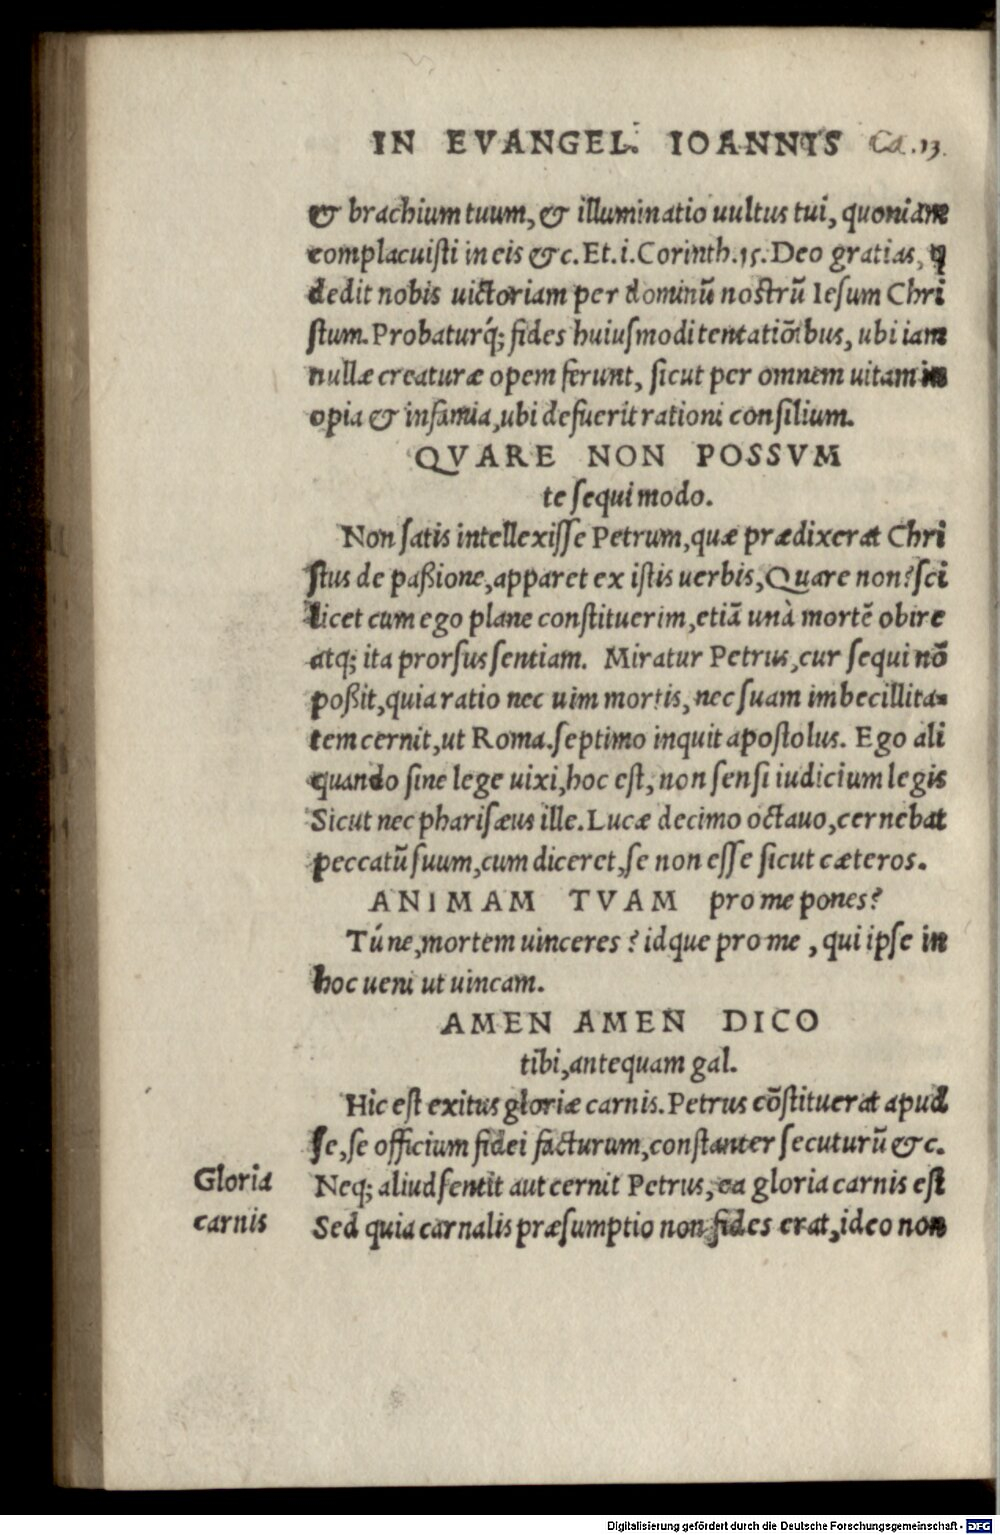 IN EVANGEL. IOANNIS Ca.13.
& brachium tuum, & illuminatio uultus tui, quoniam
complacuisti in eis &c. Et. i. Corinth.15. Deo gratias, q
dedit nobis uictoriam per dominũ nostrũ Iesum Chri
stum. Probaturq́; fides huiusmodi tentatiõibus, ubi iam
nullæ creaturæ opem ferunt, sicut per omnem uitam in
opia & infamia, ubi defuerit rationi consilium.
QVARE NON POSSVM
te sequi modo.
Non satis intellexisse Petrum, quæ prædixerat Chri
stus de paßione, apparet ex istis uerbis, Quare non? sci
licet cum ego plane constituerim, etiã unà mortẽ obire
atq; ita prorsus sentiam. Miratur Petrus, cur sequi nõ
poßit, quia ratio nec uim mortis, nec suam imbecillita-
tem cernit, ut Roma. septimo inquit apostolus. Ego ali
quando sine lege uixi, hoc est, non sensi iudicium legis
Sicut nec pharisæus ille. Lucæ decimo octauo, cernebat
peccatũ suum, cum diceret, se non esse sicut cæteros.
ANIMAM TVAM pro me pones?
Túne, mortem uinceres? idque pro me, qui ipse in
hoc ueni ut uincam.
AMEN AMEN DICO
tibi, antequam gal.
Hic est exitus gloriæ carnis. Petrus cõstituerat apud
se, se officium fidei facturum, constanter secuturũ &c.
Gloria Neq; aliud sentit aut cernit Petrus, ea gloria carnis est
carnis Sed quia carnalis præsumptio non fides erat, ideo non
Digitalisierung gefördert durch die Deutsche Forschungsgemeinschaft - DFG